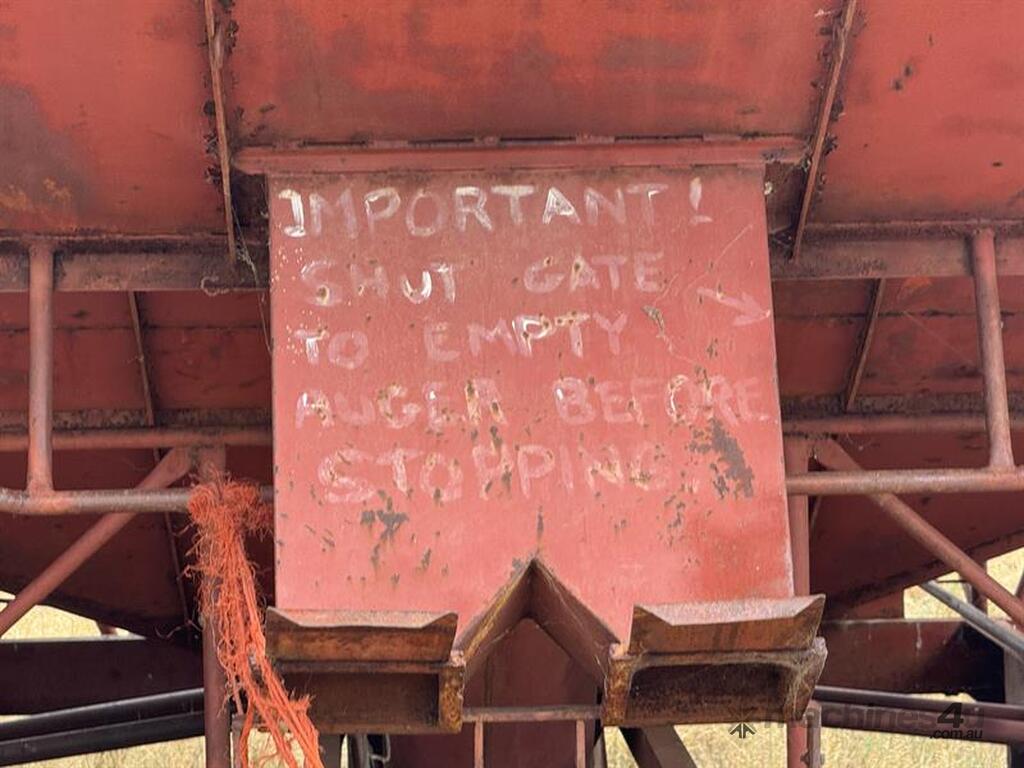 IMPORTANT!
SHUT GATE
TO EMPTY
AUGER BEFORE
STOPPING.
machines4u
.com.au